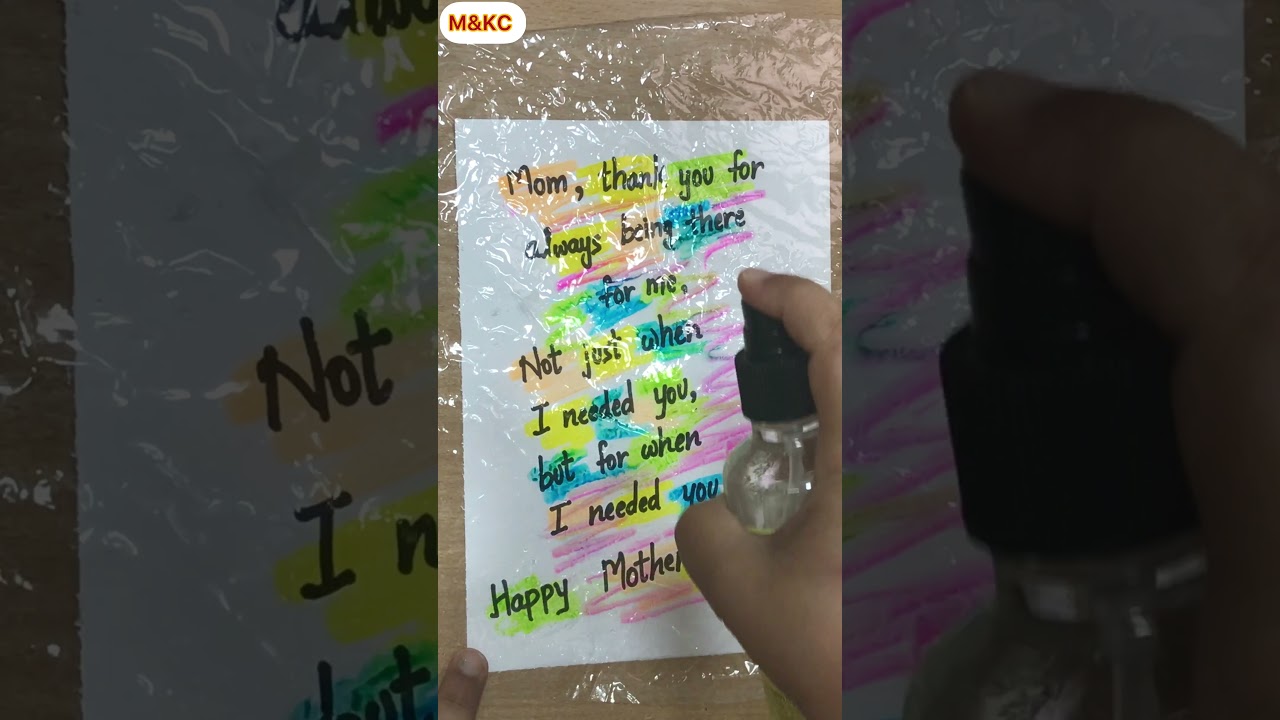 M&KC
Mom, thank you for
always being there
for me,
Not just when
I needed you,
but for when
I needed you
Happy Mother
always
Not
I n
but